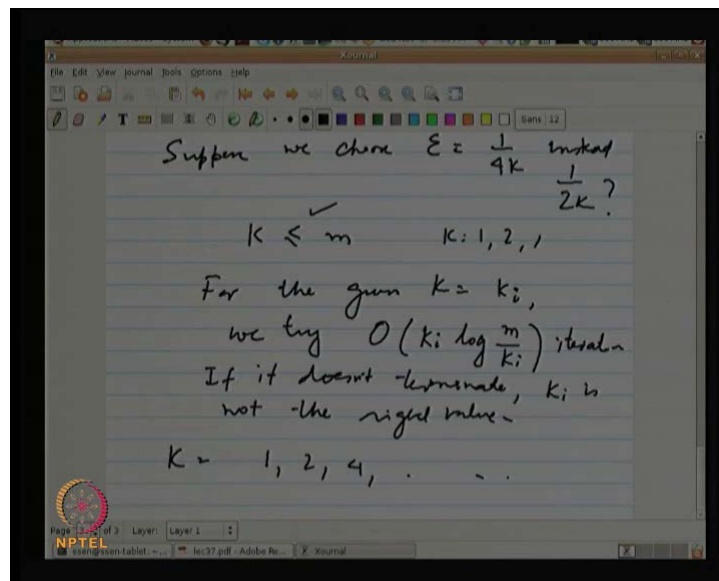 Xournal
File Edit View Journal Tools Options Help
Sans 12
Suppose we chose ε = 1/4K instead
1/2K ?
K ≤ m K: 1, 2, ,
For the given K = Ki,
we try O(Ki log m/Ki) iteratn
If it doesn't terminate, Ki is
not the right value.
K = 1, 2, 4, . . .
Page of 3 Layer: Layer 1
NPTEL
ssen@ssen-tablet: ~... lec37.pdf - Adobe Re... Xournal